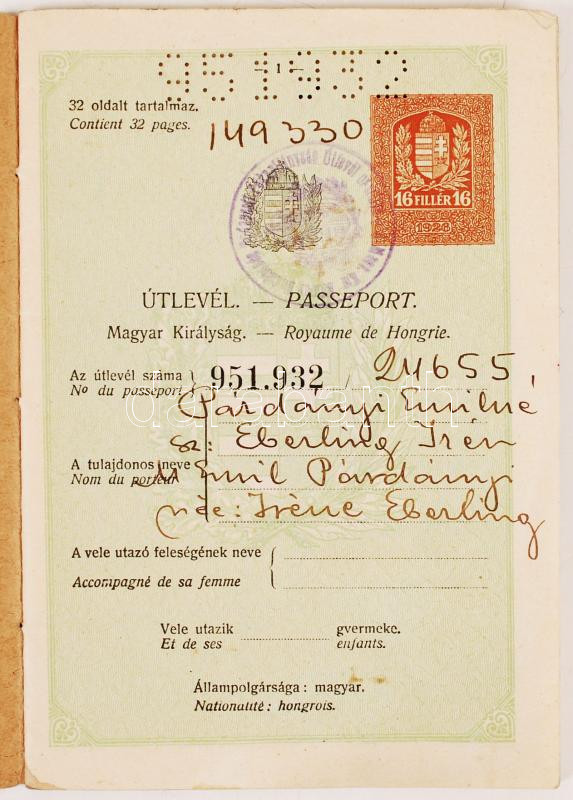 951932
— 1 —
32 oldalt tartalmaz.
Contient 32 pages.
149330
16 FILLÉR 16
1926
ÚTLEVÉL. — PASSEPORT.
Magyar Királyság. — Royaume de Hongrie.
Az útlevél száma
No du passeport
951.932 / 24655
Párdányi Emilné
sz: Eberling Irén
A tulajdonos neve
Nom du porteur
M Emil Párdányi
née: Irène Eberling
A vele utazó feleségének neve
Accompagné de sa femme
Vele utazik gyermeke.
Et de ses enfants.
Állampolgársága : magyar.
Nationalité : hongrois.
darabanth